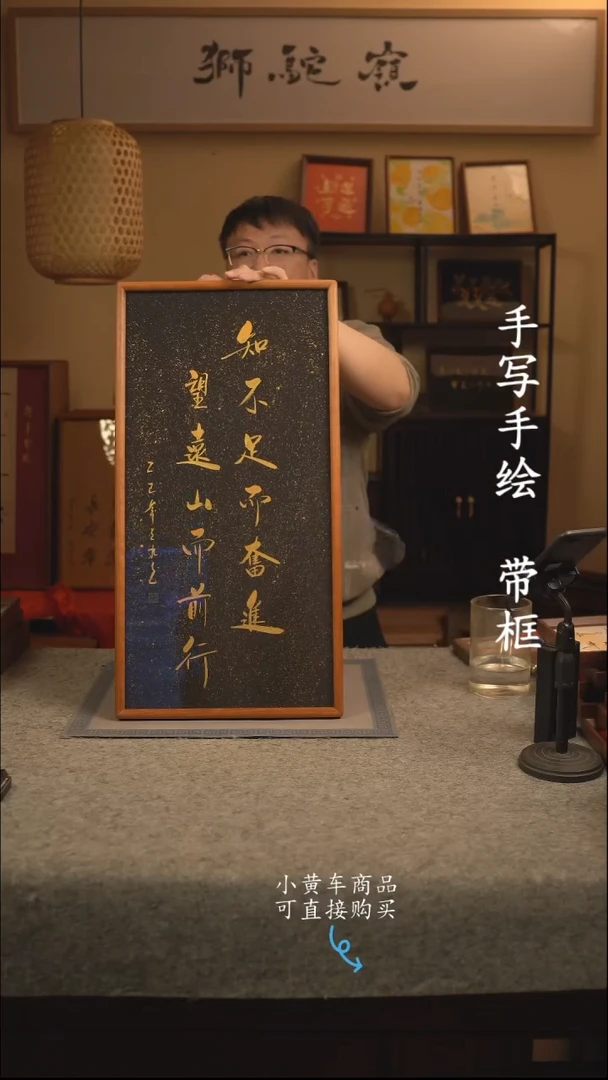 獅駝嶺
知不足而奮進
望遠山而前行
乙巳年
手写手绘 带框
小黄车商品
可直接购买